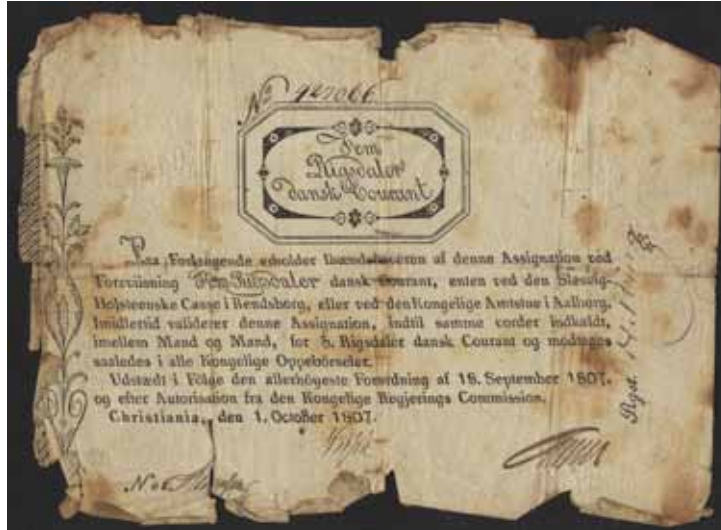 No
Fem
Rigsdaler
dansk Courant
Paa Forlangende erholder Ihændehaveren af denne Assignation ved
Foreviisning Fem Rigsdaler dansk Courant, enten ved den Slesvig-
Holsteenske Casse i Rendsborg, eller ved den Kongelige Amtstue i Aalborg.
Imidlertid validerer denne Assignation, indtil samme vorder indkaldt,
imellem Mand og Mand, for 5. Rigsdaler dansk Courant og modtages
saaledes i alle Kongelige Oppebörseler.
Udstædt i Fölge den allerhögeste Forordning af 18. September 1807.
og efter Autorisation fra den Kongelige Regjerings Commission.
Christiania, den 1. October 1807.